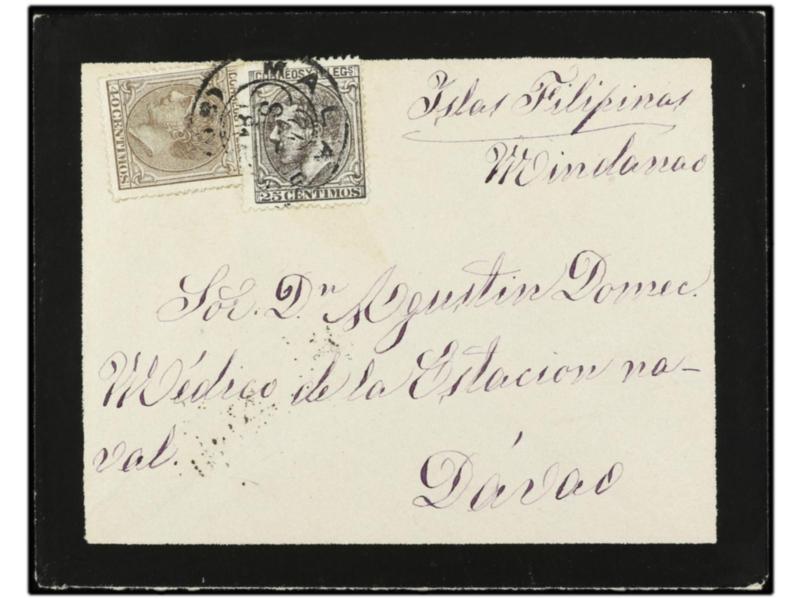 CORREOS Y TELEGS
40 CENTIMOS
25 CENTIMOS
Islas Filipinas
Mindanao
Sõr. Dn Agustin Domec.
Médico de la Estacion na-
val.
Dávao